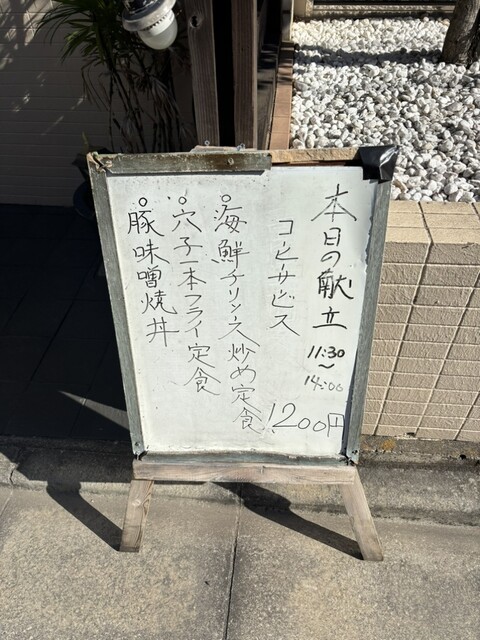 本日の献立
11:30
〜
14:00
コーヒーサービス
1200円
○海鮮チリソース炒め定食
○穴子一本フライ定食
○豚味噌焼丼